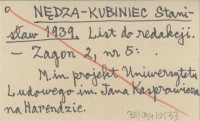 NĘDZA-KUBINIEC Stani-
sław 1939. List do redakcji.
– Zagon 2, nr 5:
M.in projekt Uniwersytetu
Ludowego im. Jana Kasprowicza
na Harendzie.